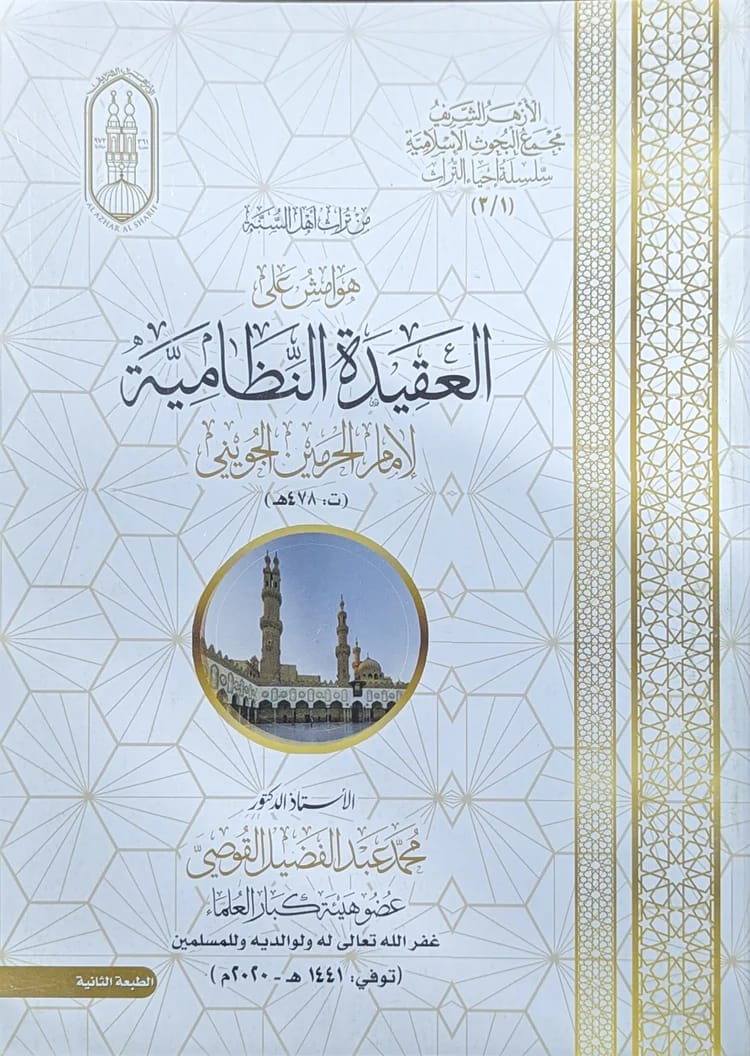 الأزهر الشريف
مجمع البحوث الإسلامية
سلسلة إحياء التراث
(٣/١)
٣٦١ ٩٧٢
AL AZHAR AL SHARIF
من تراث أهل السنة
هوامش على
العقيدة النظامية
لإمام الحرمين الجويني
(ت: ٤٧٨هـ)
الأستاذ الدكتور
محمد عبد الفضيل القوصي
عضو هيئة كبار العلماء
غفر الله تعالى له ولوالديه وللمسلمين
(توفي: ١٤٤١ هـ - ٢٠٢٠م)
الطبعة الثانية